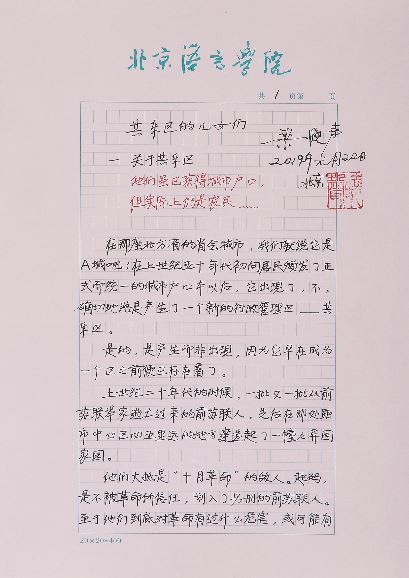 北京语言学院
共 1 页 第 页
共乐区的儿女们
梁晓声
一 关于共乐区
2019年元月22日
他们虽已获得城市户口,
北京
但实际上仍是农民……
在那座北方省的省会城市,我们就说它是
A城吧;在上世纪五十年代初向居民颁发了正
式而统一的城市户口本以后,它出现了,不,
确切地说是产生了一个新的行政管理区——共
乐区。
是的,是产生而非出现,因为它早在成为
一个区之前便已存在着了。
上世纪二十年代初的时候,一批又一批从前
苏联举家逃亡过来的前苏联人,先后在那处距
市中心区四五里远的地方建造起了一幢幢异国
家园。
他们大抵是“十月革命”的敌人。起码,
是不被革命所信任,划入了另册的前苏联人。
至于他们到底对革命有过什么危害,或可能有
20×20=400